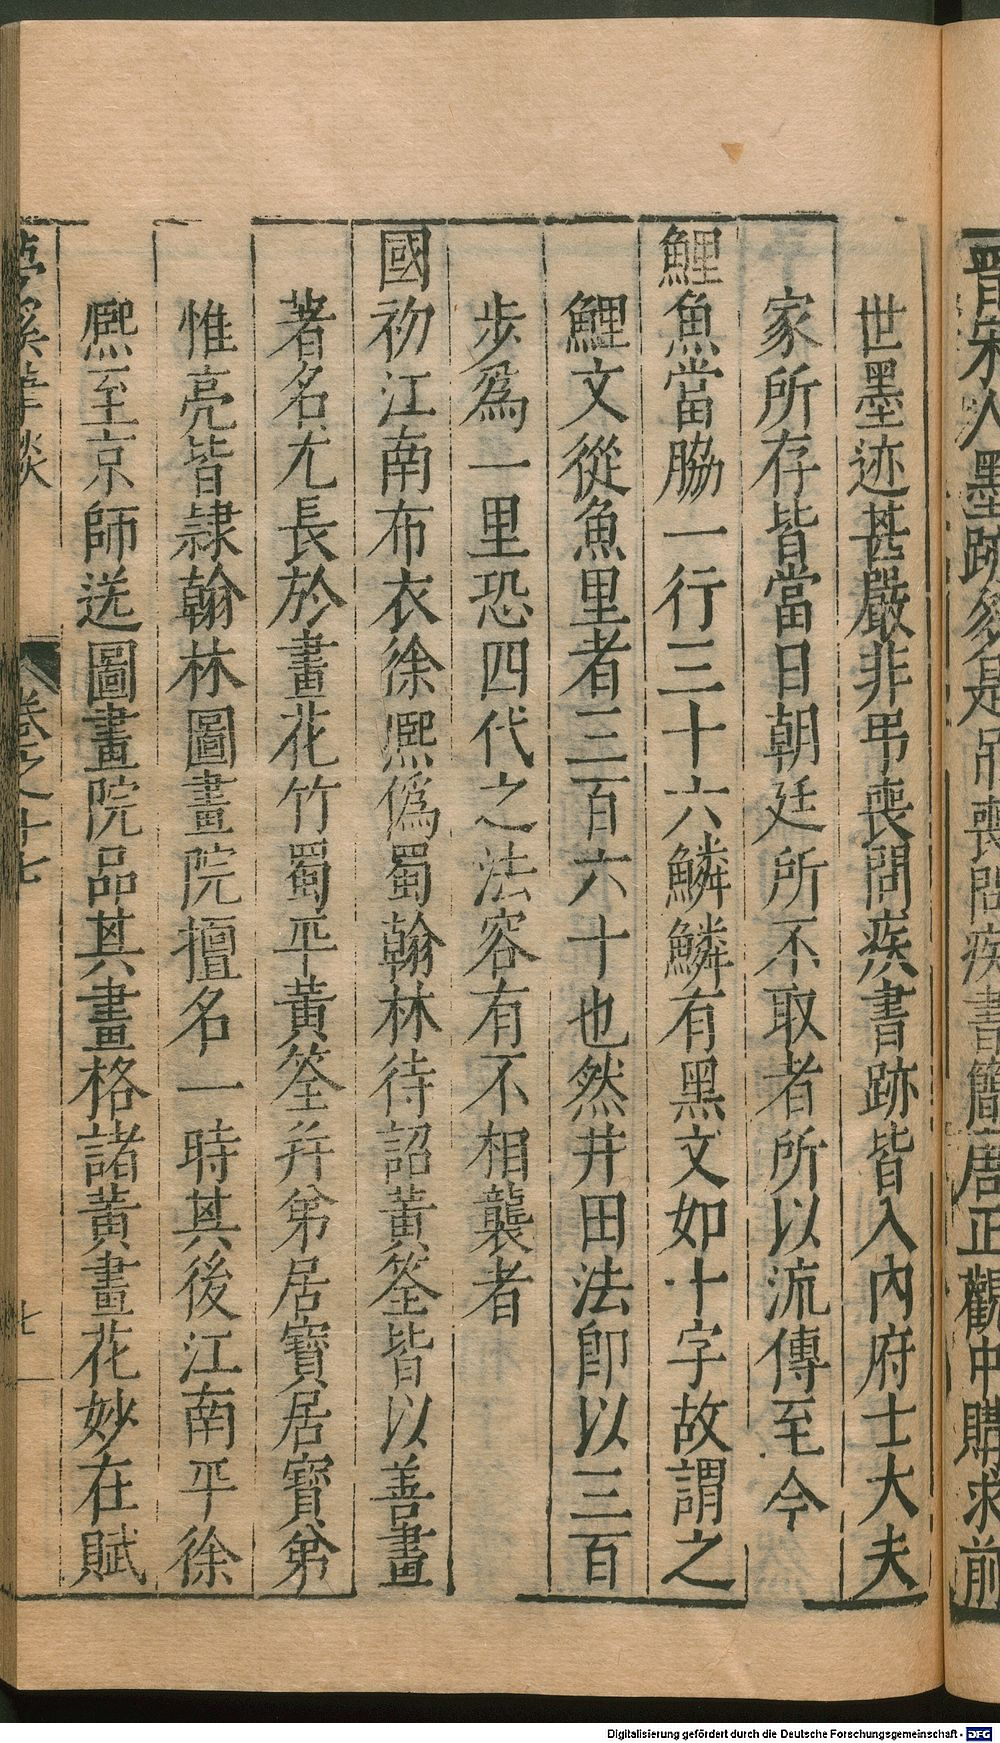 晉宋人墨跡多是弔喪問疾書簡唐正觀中購求前
世墨迹甚嚴非弔喪問疾書跡皆入內府士大夫
家所存皆當日朝廷所不取者所以流傳至今
鯉魚當脇一行三十六鱗鱗有黑文如十字故謂之
鯉文從魚里者三百六十也然井田法即以三百
步爲一里恐四代之法容有不相襲者
國初江南布衣徐熈僞蜀翰林待詔黃筌皆以善畫
著名尤長於畫花竹蜀平黃筌并弟居寶居寶弟
惟亮皆隸翰林圖畫院擅名一時其後江南平徐
熈至京師送圖畫院品其畫格諸黃畫花妙在賦
夢溪筆談 卷之十七 七
Digitalisierung gefördert durch die Deutsche Forschungsgemeinschaft - DFG